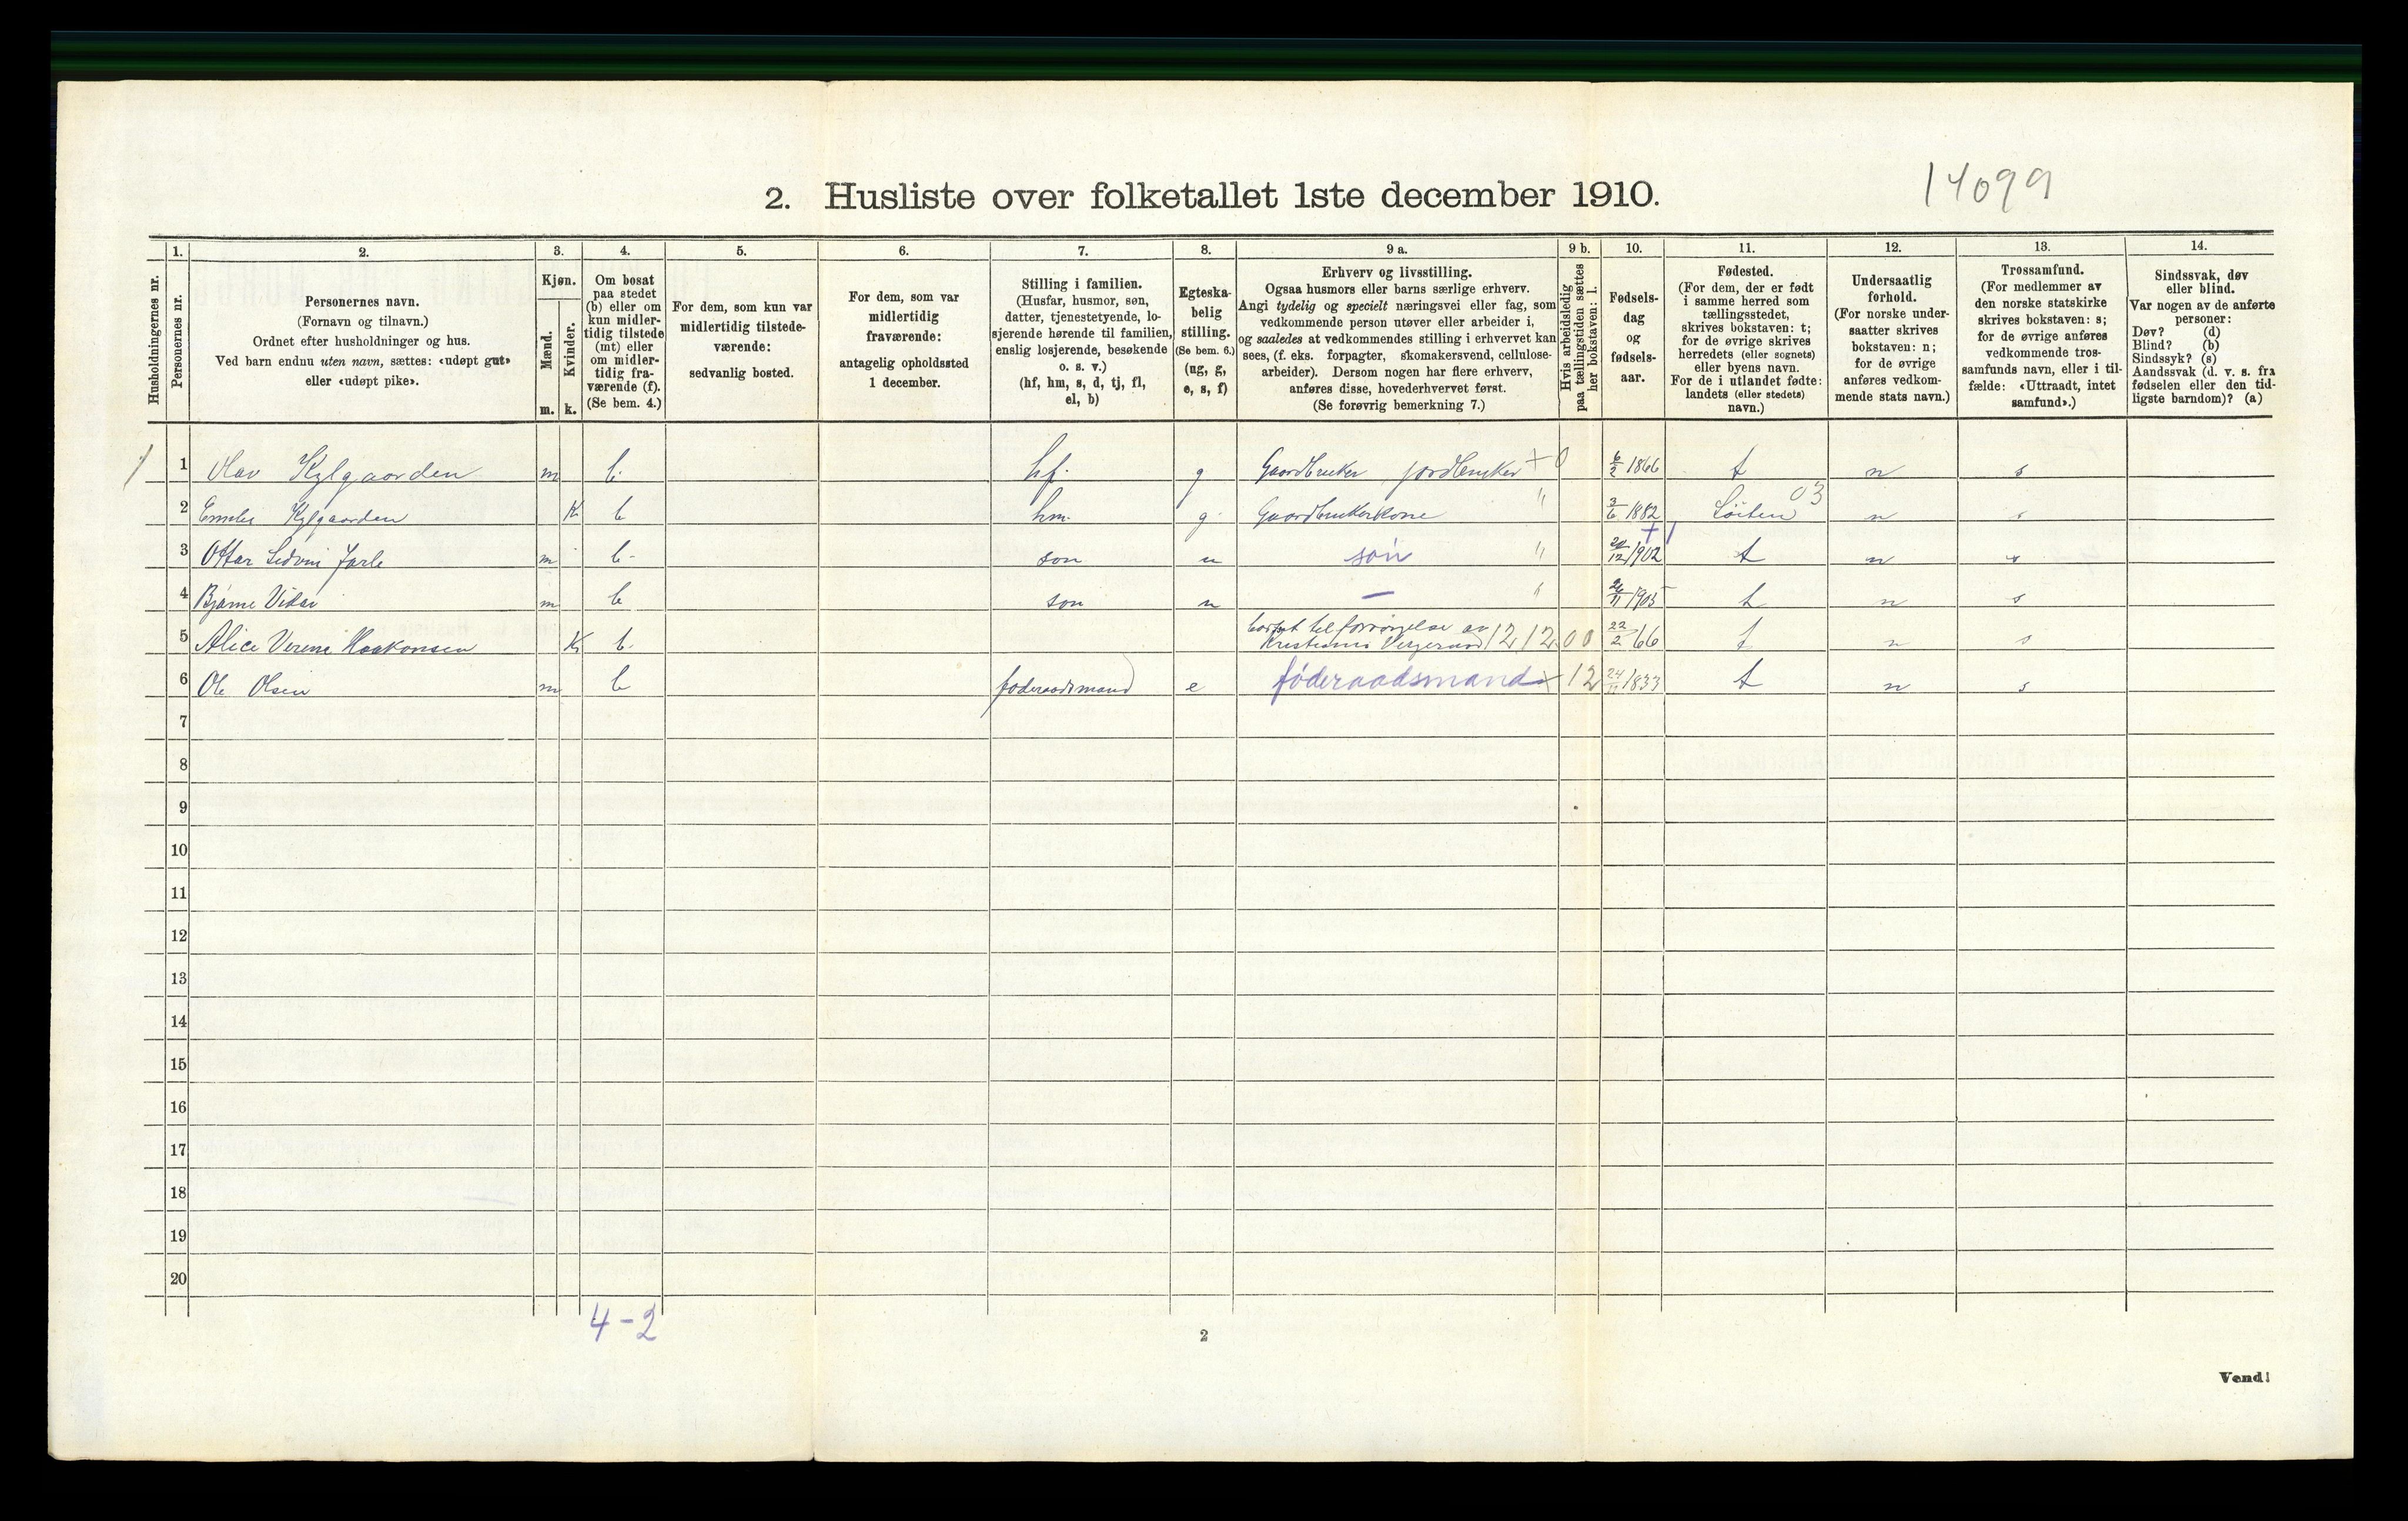 14099
2. Husliste over folketallet 1ste december 1910.
Husholdningernes nr.
1.
Personernes nr.
2.
Personernes navn.
(Fornavn og tilnavn.)
Ordnet efter husholdninger og hus.
Ved barn endnu uten navn, sættes: «udøpt gut»
eller «udøpt pike».
3.
Kjøn.
Mænd.
Kvinder.
m. k.
4.
Om bosat
paa stedet
(b) eller om
kun midler-
tidig tilstede
(mt) eller
om midler-
tidig fra-
værende (f).
(Se bem. 4.)
5.
For dem, som kun var
midlertidig tilstede-
værende:
sedvanlig bosted.
6.
For dem, som var
midlertidig
fraværende:
antagelig opholdssted
1 december.
7.
Stilling i familien.
(Husfar, husmor, søn,
datter, tjenestetyende, lo-
sjerende hørende til familien,
enslig losjerende, besøkende
o. s. v.)
(hf, hm, s, d, tj, fl,
el, b)
8.
Egteska-
belig
stilling.
(Se bem. 6.)
(ug, g,
e, s, f)
9 a.
Erhverv og livsstilling.
Ogsaa husmors eller barns særlige erhverv.
Angi tydelig og specielt næringsvei eller fag, som
vedkommende person utøver eller arbeider i,
og saaledes at vedkommendes stilling i erhvervet kan
sees, (f. eks. forpagter, skomakersvend, cellulose-
arbeider). Dersom nogen har flere erhverv,
anføres disse, hovederhvervet først.
(Se forøvrig bemerkning 7.)
9 b.
Hvis arbeidsledig
paa tællingstiden sættes
her bokstaven: l.
10.
Fødsels-
dag
og
fødsels-
aar.
11.
Fødested.
(For dem, der er født
i samme herred som
tællingsstedet,
skrives bokstaven: t;
for de øvrige skrives
herredets (eller sognets)
eller byens navn.
For de i utlandet fødte:
landets (eller stedets)
navn.)
12.
Undersaatlig
forhold.
(For norske under-
saatter skrives
bokstaven: n;
for de øvrige
anføres vedkom-
mende stats navn.)
13.
Trossamfund.
(For medlemmer av
den norske statskirke
skrives bokstaven: s;
for de øvrige anføres
vedkommende tros-
samfunds navn, eller i til-
fælde: «Uttraadt, intet
samfund».)
14.
Sindssvak, døv
eller blind.
Var nogen av de anførte
personer:
Døv? (d)
Blind? (b)
Sindssyk? (s)
Aandssvak (d. v. s. fra
fødselen eller den tid-
ligste barndom)? (a)
1 1 Olav Kylgaarden m b. hf. g Gaardbruker jordbruker + 0 6/2 1866 t n s
2 Kylgaarden K b hm. g Gaardbrukerkone " 3/6 1882 Löiten 03 n s
3 Ottar Jarle m b- son u søn " 20/12 1902 + 1 t n s
4 Bjarne Vidar m b son u — " 1905 t n s
5 Alice Verena Haakonsen K b. bortsat til forsørgelse av
Kristiania 12 12 00 22/2 66 t n s
6 Ole Olsen m b føderaadsmand e føderaadsmand x 12 24/11 1833 t n s
7
8
9
10
11
12
13
14
15
16
17
18
19
20
4-2
2
Vend!